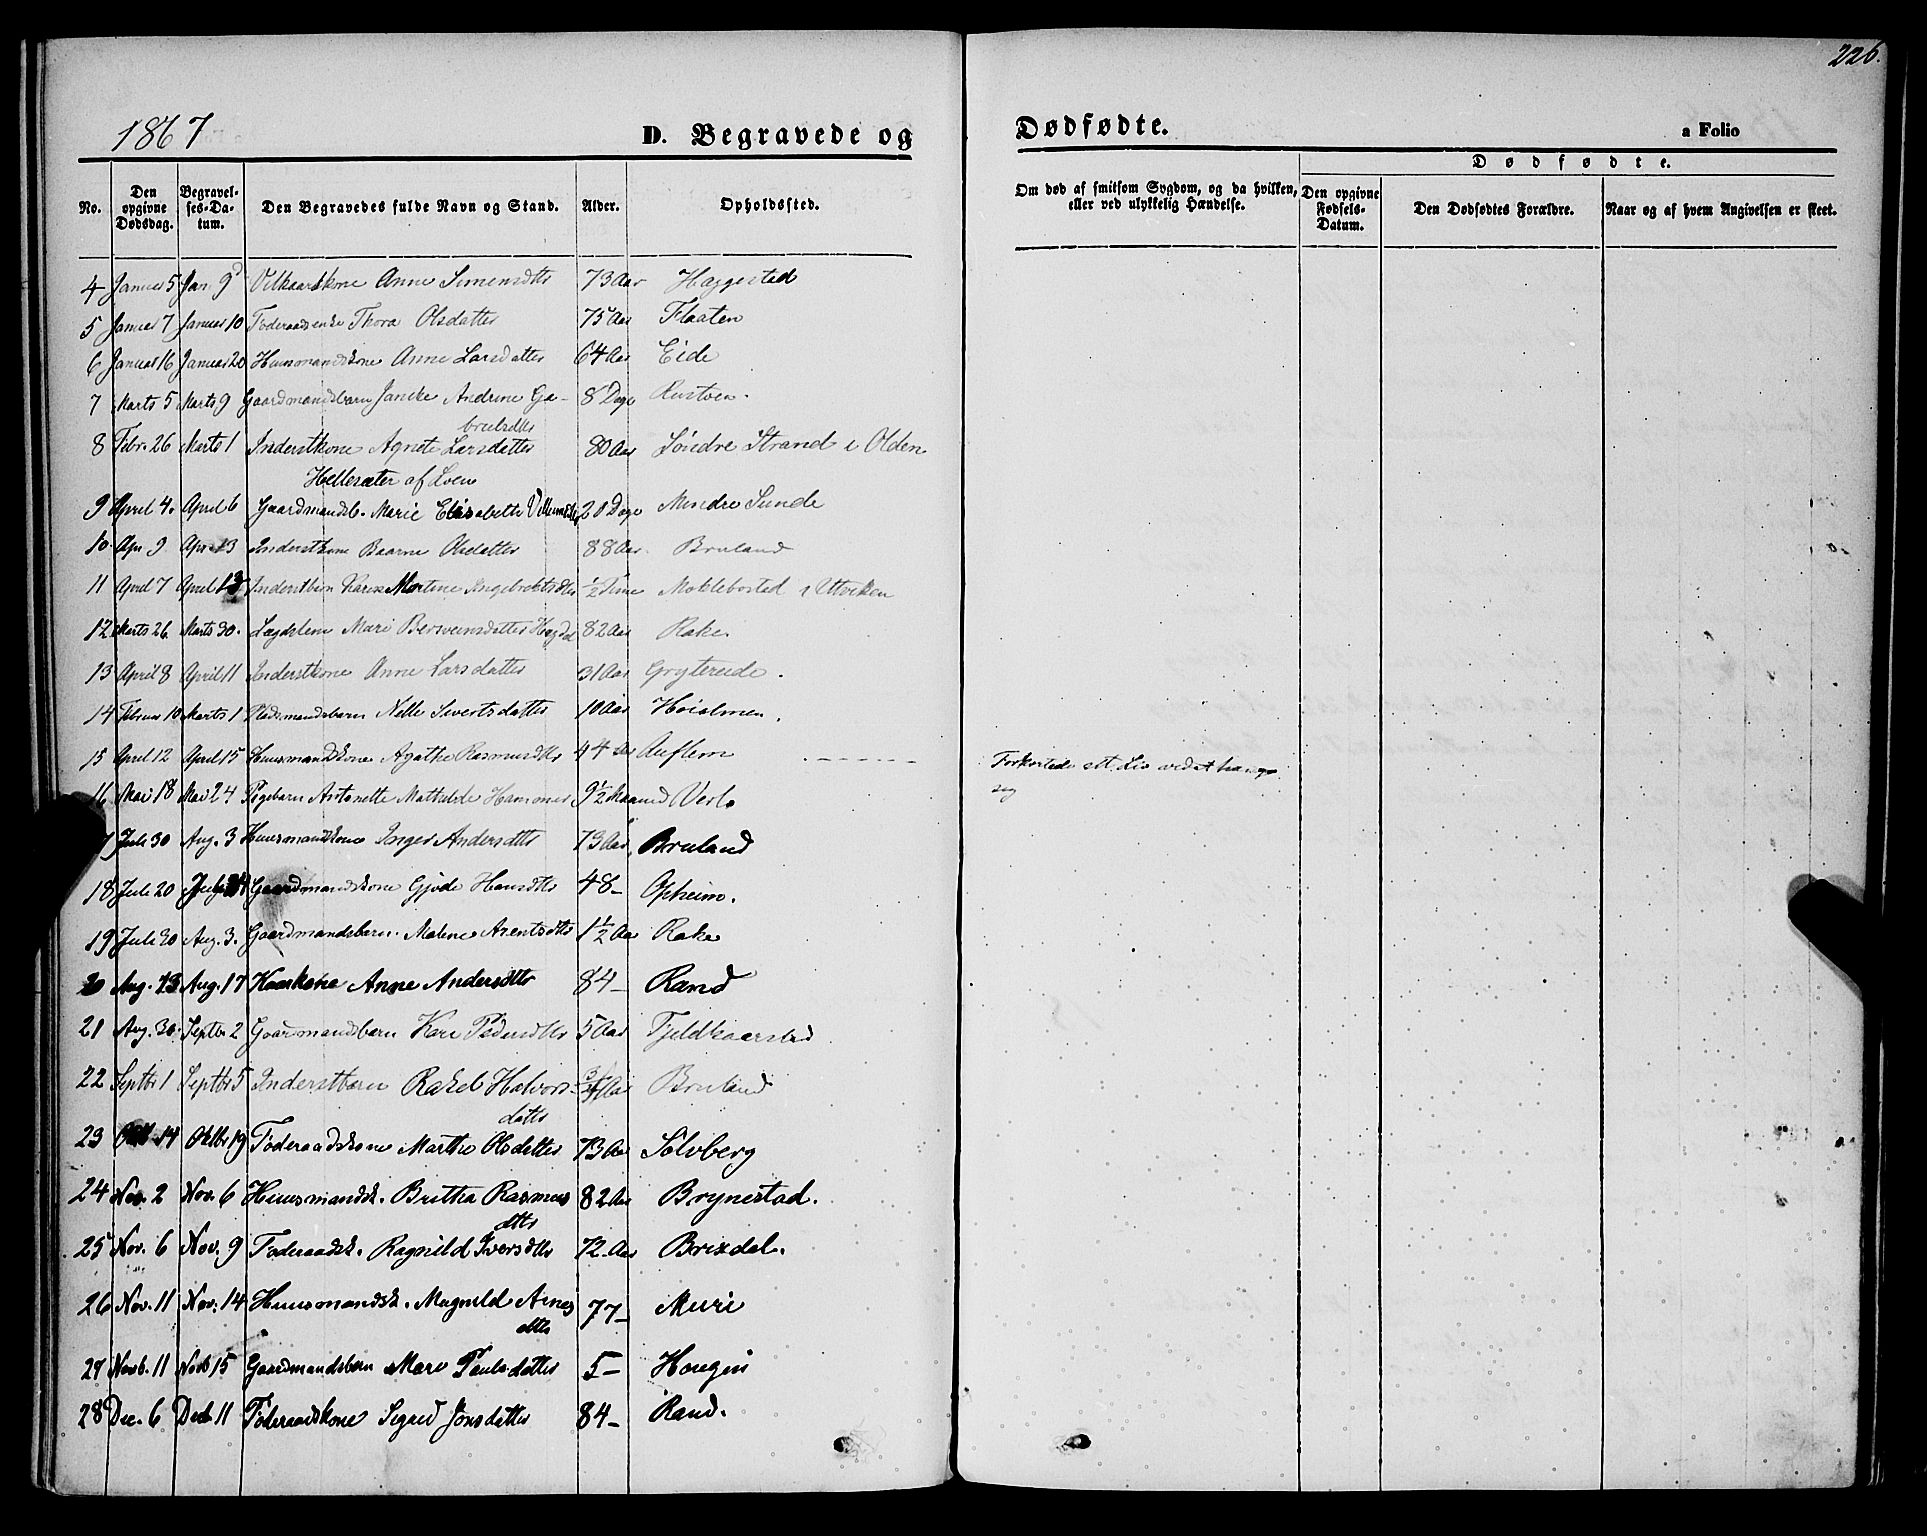 226.
1867
D. Begravede og Dødfødte.
a Folio
No.
Den opgivne Dødsdag.
Begravelses-Datum.
Den Begravedes fulde Navn og Stand.
Alder.
Opholdssted.
Om død af smitsom Sygdom, og da hvilken, eller ved ulykkelig Hændelse.
Dødfødte.
Den opgivne Fødsels-Datum.
Den Dødfødtes Forældre.
Naar og af hvem Angivelsen er skeet.
4 Januar 5 Jan. 9 Vilkaarskone Anne Simensdtr 73 Aar Haggestad
5 Januar 7 Januar 10 Føderaadsenke Thora Olsdatter 75 Aar Flaaten
6 Januar 16 Januar 20 Huusmandskone Anne Larsdatter 64 Aar Eide
7 Marts 5 Marts 9 Gaardmandsbarn Janike Andrine Ga-
brielsdtr 8 Dage Rustøen.
8 Febr. 26 Marts 1 Inderstkone Agnete Larsdatter 80 Aar Søndre Strand i Olden
Hellesæter af Loen
9 April 4. April 6 Gaardmandsb. Marie Elisabeth Villumsdtr 20 Dage Mindre Sunde
10. Apr 9 Apr. 13 Inderstkone Baarne Olsdatter 88 Aar. Bruland
11 April 7 April 13 Inderstbarn Karen Martine Ingebrektsdtr ½ Time Moklebostad i Utviken
12 Marts 26 Marts 30. Lægdslem Mari Berveensdatter Hegdal 82 Aar Rake.
13 April 8 April 11 Inderstkone Anne Larsdatter 31 Aar Grytereide.
14 Februar 10 Marts 1 Pladsmandsbarn Nelle Sivertsdatter 10 Aar Hoialmen.
15 April 12 April 15 Huusmandskone Agathe Rasmusdtr 44 Aar Auflem - - - - - - - Forkortede sit Liv ved at hænge
sig
16 Mai 18 Mai 24 Pigebarn Antonette Mathilde Hammer 9½ Maaned Verlo
17 Juli 30 Aug. 3 Huusmandskone Inger Andersdtr 73 Aar. Bruland
18 Juli 20 Juli 24 Gaardmandskone Gjøde Hansdtr 48- Opheim.
19 Juli 30 Aug. 3. Gaardmandsbarn Malene Arentsdtr 1½ Aar Rake
20 Aug. 13 Aug. 17 Kaarkone Anne Andersdtr 84- Rand
21 Aug. 30. Septbr 2 Gaardmandsbarn Kari Pedersdtr 5 Aar Fjeldkaarstad
22 Septbr 1 Septbr 5 Inderstbarn Rakel Halvors-
datter ¾ Aar Bruland
23 Okt 14 Oktbr 19 Føderaadskone Marthe Olsdatter 73 Aar Sølvberg
24 Nov. 2 Nov. 6 Huusmandsk. Britha Rasmus
dtr 82 Aar Brynestad.
25 Nov. 6 Nov. 9 Føderaadsk. Ragnild Iversdtr 72 Aar Brixdal.
26 Nov. 11 Nov. 14 Huusmandsk. Magnild Arnes
dtr 77- Muri
27 Novb. 11 Novb 15 Gaardmandsbarn Mari Paulsdatter 5- Hougen
28 Dec. 6 Decb 11 Føderaadskone Sigrid Jonsdatter 84- Rand.